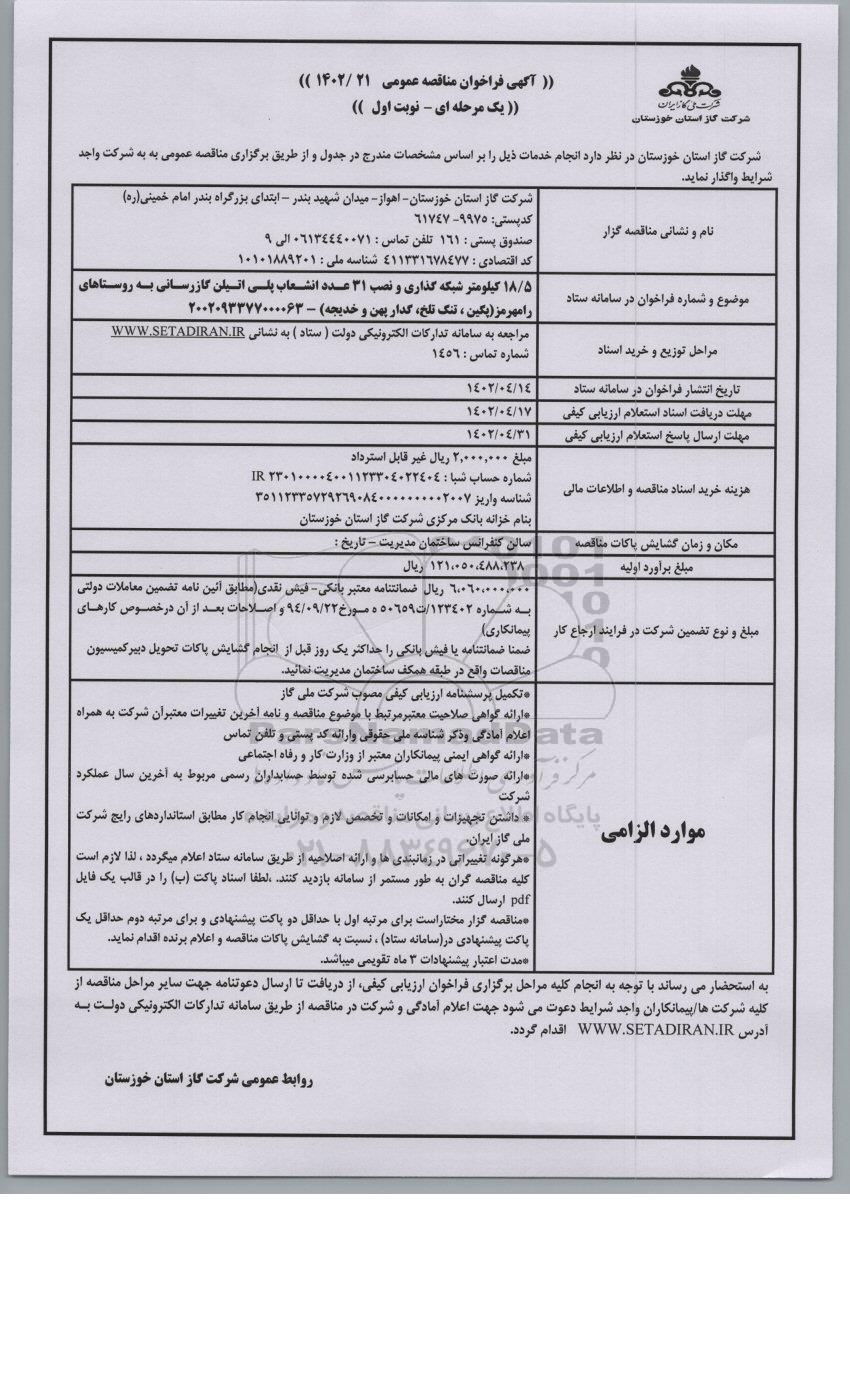 (( آگهی فراخوان مناقصه عمومی ۲۱ /۱۴۰۲ ))
(( یک مرحله ای – نوبت اول ))
شرکت ملی گاز ایران
شرکت گاز استان خوزستان
شرکت گاز استان خوزستان در نظر دارد انجام خدمات ذیل را بر اساس مشخصات مندرج در جدول و از طریق برگزاری مناقصه عمومی به به شرکت واجد
شرایط واگذار نماید.
نام و نشانی مناقصه گزار
شرکت گاز استان خوزستان- اهواز- میدان شهید بندر – ابتدای بزرگراه بندر امام خمینی(ره)
کدپستی: ۹۹۷۵- ۶۱۷۴۷
صندوق پستی : ۱۶۱ تلفن تماس : ۰۶۱۳۴۴۴۰۰۷۱ الی ۹
کد اقتصادی : ۴۱۱۳۳۱۶۷۸۴۷۷ شناسه ملی : ۱۰۱۰۱۸۸۹۲۰۱
موضوع و شماره فراخوان در سامانه ستاد
۱۸/۵ کیلومتر شبکه گذاری و نصب ۳۱ عدد انشعاب پلی اتیلن گازرسانی به روستاهای
رامهرمز(پگین ، تنگ تلخ، گدار پهن و خدیجه) – ۲۰۰۲۰۹۳۳۷۷۰۰۰۰۶۳
مراحل توزیع و خرید اسناد
مراجعه به سامانه تدارکات الکترونیکی دولت ( ستاد ) به نشانی WWW.SETADIRAN.IR
شماره تماس : ۱۴۵۶
تاریخ انتشار فراخوان در سامانه ستاد
۱۴۰۲/۰۴/۱۴
مهلت دریافت اسناد استعلام ارزیابی کیفی
۱۴۰۲/۰۴/۱۷
مهلت ارسال پاسخ استعلام ارزیابی کیفی
۱۴۰۲/۰۴/۳۱
هزینه خرید اسناد مناقصه و اطلاعات مالی
مبلغ ۲,۰۰۰,۰۰۰ ریال غیر قابل استرداد
شماره حساب شبا : IR ۲۳۰۱۰۰۰۰۴۰۰۱۱۲۳۳۰۴۰۲۲۴۰۴
شناسه واریز ۳۵۱۱۲۳۳۵۷۲۹۲۶۹۰۸۴۰۰۰۰۰۰۰۰۰۰۲۰۰۷
بنام خزانه بانک مرکزی شرکت گاز استان خوزستان
مکان و زمان گشایش پاکات مناقصه
سالن کنفرانس ساختمان مدیریت – تاریخ :
مبلغ برآورد اولیه
۱۲۱،۰۵۰،٤۸۸،۲۳۸ ریال
مبلغ و نوع تضمین شرکت در فرایند ارجاع کار
۶،۰۶۰،۰۰۰،۰۰۰ ریال ضمانتنامه معتبر بانکی- فیش نقدی(مطابق آئین نامه تضمین معاملات دولتی
به شماره ۱۲۳۴۰۲/ت۵۰۶۵۹ ه مورخ۹۴/۰۹/۲۲ و اصلاحات بعد از آن درخصوص کارهای
پیمانکاری)
ضمنا ضمانتنامه یا فیش بانکی را حداکثر یک روز قبل از انجام گشایش پاکات تحویل دبیرکمیسیون
مناقصات واقع در طبقه همکف ساختمان مدیریت نمائید.
موارد الزامی
*تکمیل پرسشنامه ارزیابی کیفی مصوب شرکت ملی گاز
*ارائه گواهی صلاحیت معتبرمرتبط با موضوع مناقصه و نامه آخرین تغییرات معتبرآن شرکت به همراه
اعلام آمادگی وذکر شناسه ملی حقوقی وارائه کد پستی و تلفن تماس
*ارائه گواهی ایمنی پیمانکاران معتبر از وزارت کار و رفاه اجتماعی
*ارائه صورت های مالی حسابرسی شده توسط حسابداران رسمی مربوط به آخرین سال عملکرد
شرکت
* داشتن تجهیزات و امکانات و تخصص لازم و توانایی انجام کار مطابق استانداردهای رایج شرکت
ملی گاز ایران.
*هرگونه تغییراتی در زمانبندی ها و ارائه اصلاحیه از طریق سامانه ستاد اعلام میگردد ، لذا لازم است
کلیه مناقصه گران به طور مستمر از سامانه بازدید کنند. ،لطفا اسناد پاکت (ب) را در قالب یک فایل
pdf ارسال کنند.
*مناقصه گزار مختاراست برای مرتبه اول با حداقل دو پاکت پیشنهادی و برای مرتبه دوم حداقل یک
پاکت پیشنهادی در(سامانه ستاد) ، نسبت به گشایش پاکات مناقصه و اعلام برنده اقدام نماید.
*مدت اعتبار پیشنهادات ۳ ماه تقویمی میباشد.
به استحضار می رساند با توجه به انجام کلیه مراحل برگزاری فراخوان ارزیابی کیفی، از دریافت تا ارسال دعوتنامه جهت سایر مراحل مناقصه از
کلیه شرکت ها/پیمانکاران واجد شرایط دعوت می شود جهت اعلام آمادگی و شرکت در مناقصه از طریق سامانه تدارکات الکترونیکی دولت به
آدرس WWW.SETADIRAN.IR اقدام گردد.
روابط عمومی شرکت گاز استان خوزستان
ParsNamadData